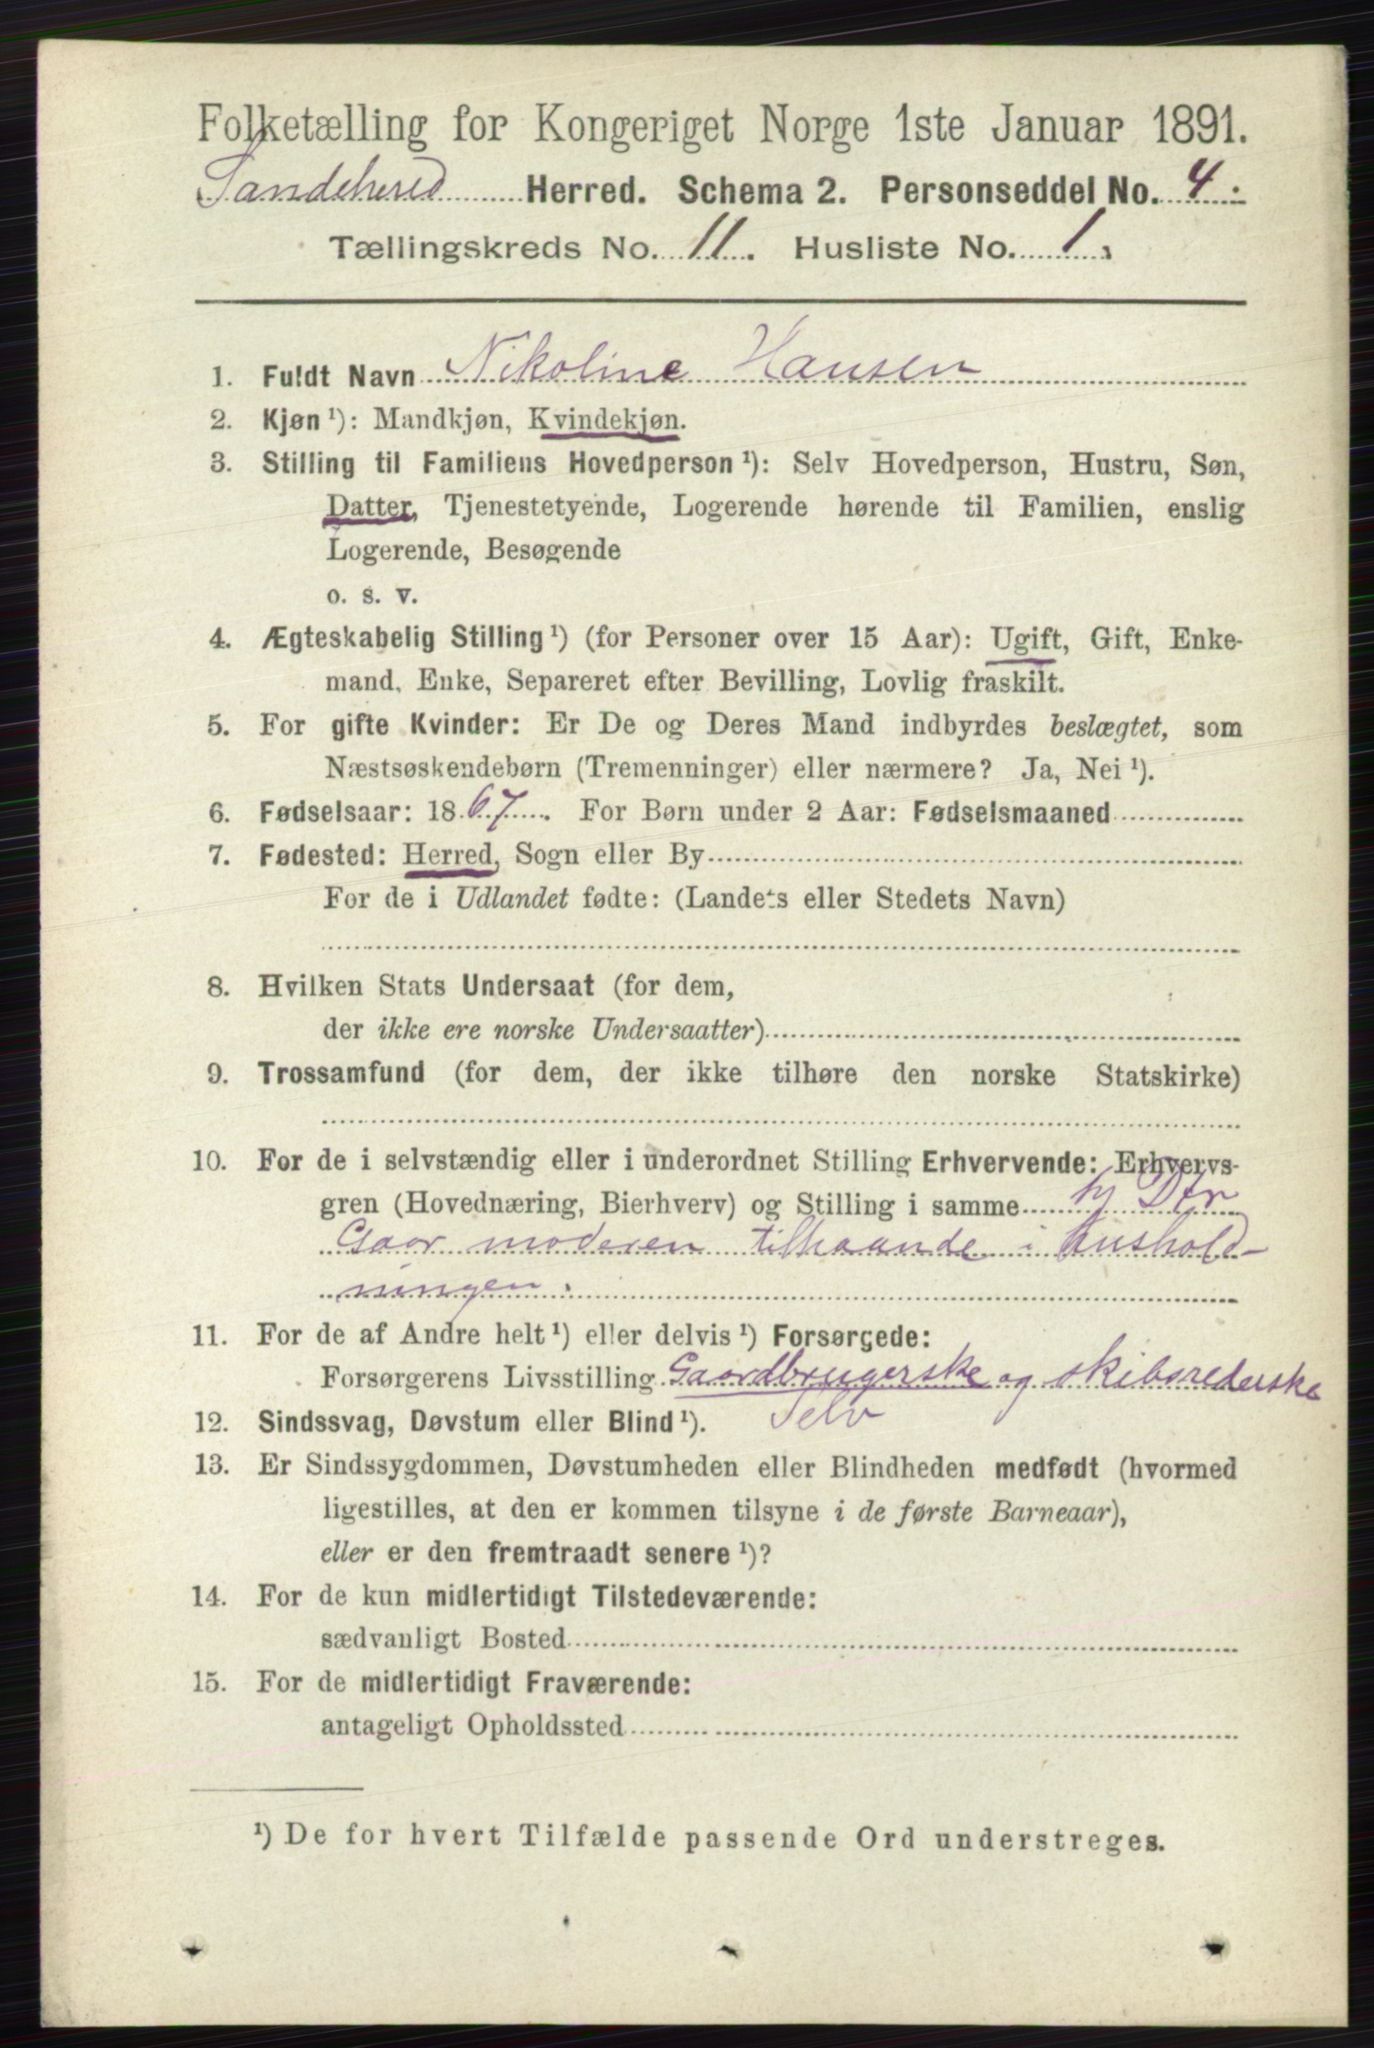 Folketælling for Kongeriget Norge 1ste Januar 1891.
Sandeherred Herred. Schema 2. Personseddel No. 4.
Tællingskreds No. 11. Husliste No. 1.
1. Fuldt Navn Nikoline Hansen
2. Kjøn ¹): Mandkjøn, Kvindekjøn.
3. Stilling til Familiens Hovedperson ¹): Selv Hovedperson, Hustru, Søn,
Datter, Tjenestetyende, Logerende hørende til Familien, enslig
Logerende, Besøgende
o. s. v.
4. Ægteskabelig Stilling ¹) (for Personer over 15 Aar): Ugift, Gift, Enke-
mand, Enke, Separeret efter Bevilling, Lovlig fraskilt.
5. For gifte Kvinder: Er De og Deres Mand indbyrdes beslægtet, som
Næstsøskendebørn (Tremenninger) eller nærmere? Ja, Nei ¹).
6. Fødselsaar: 1867. For Børn under 2 Aar: Fødselsmaaned
7. Fødested: Herred, Sogn eller By
For de i Udlandet fødte: (Landets eller Stedets Navn)
8. Hvilken Stats Undersaat (for dem,
der ikke ere norske Undersaatter)
9. Trossamfund (for dem, der ikke tilhøre den norske Statskirke)
10. For de i selvstændig eller i underordnet Stilling Erhvervende: Erhvervs-
gren (Hovednæring, Bierhverv) og Stilling i samme hj Dtr
Gaar moderen tilhaande i hushold-
ningen.
11. For de af Andre helt ¹) eller delvis ¹) Forsørgede:
Forsørgerens Livsstilling Gaardbrugerske og skibsrederske
12. Sindssvag, Døvstum eller Blind ¹). Selv
13. Er Sindssygdommen, Døvstumheden eller Blindheden medfødt (hvormed
ligestilles, at den er kommen tilsyne i de første Barneaar),
eller er den fremtraadt senere ¹)?
14. For de kun midlertidigt Tilstedeværende:
sædvanligt Bosted
15. For de midlertidigt Fraværende:
antageligt Opholdssted
¹) De for hvert Tilfælde passende Ord understreges.